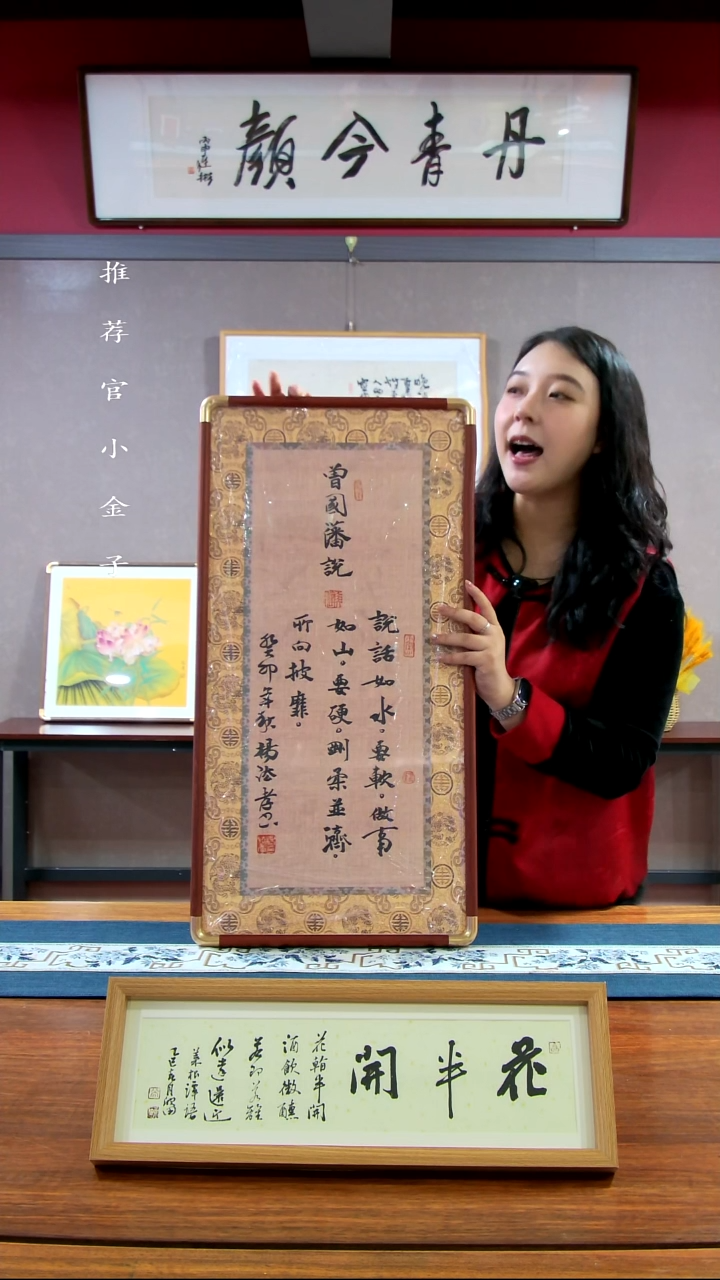 丹青今顏
推荐官小金子
曾國藩說
說話如水。要軟。做事
如山。要硬。剛柔並濟。
所向披靡。
癸卯年秋楊浩孝書
花半開
花翰半開
酒飲微醺
若即若離
似遠還近